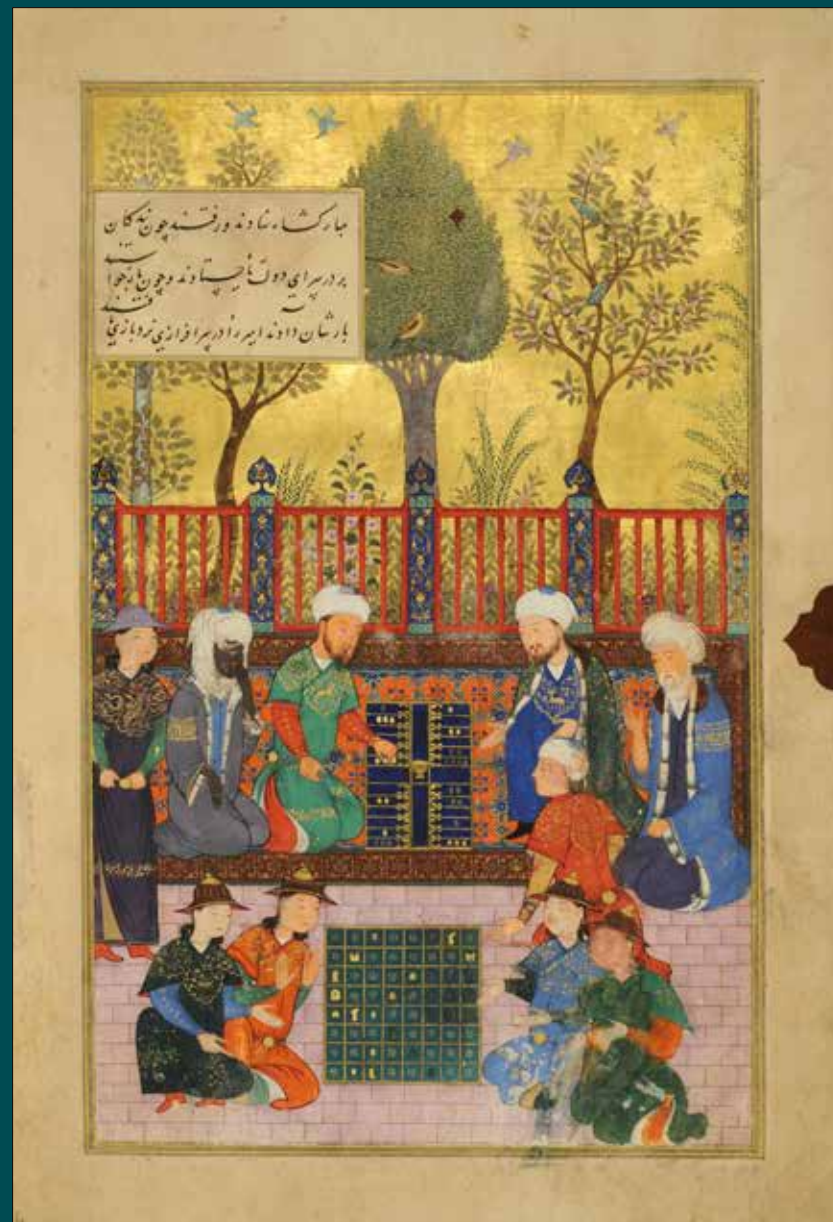 مبارکشاه نهادند و رفتند چون بندگان
بر در سرای دولت بایستادند و چون بار خواستند
بارشان دادند امیر را در سرافرازی نرد بازی یافتند